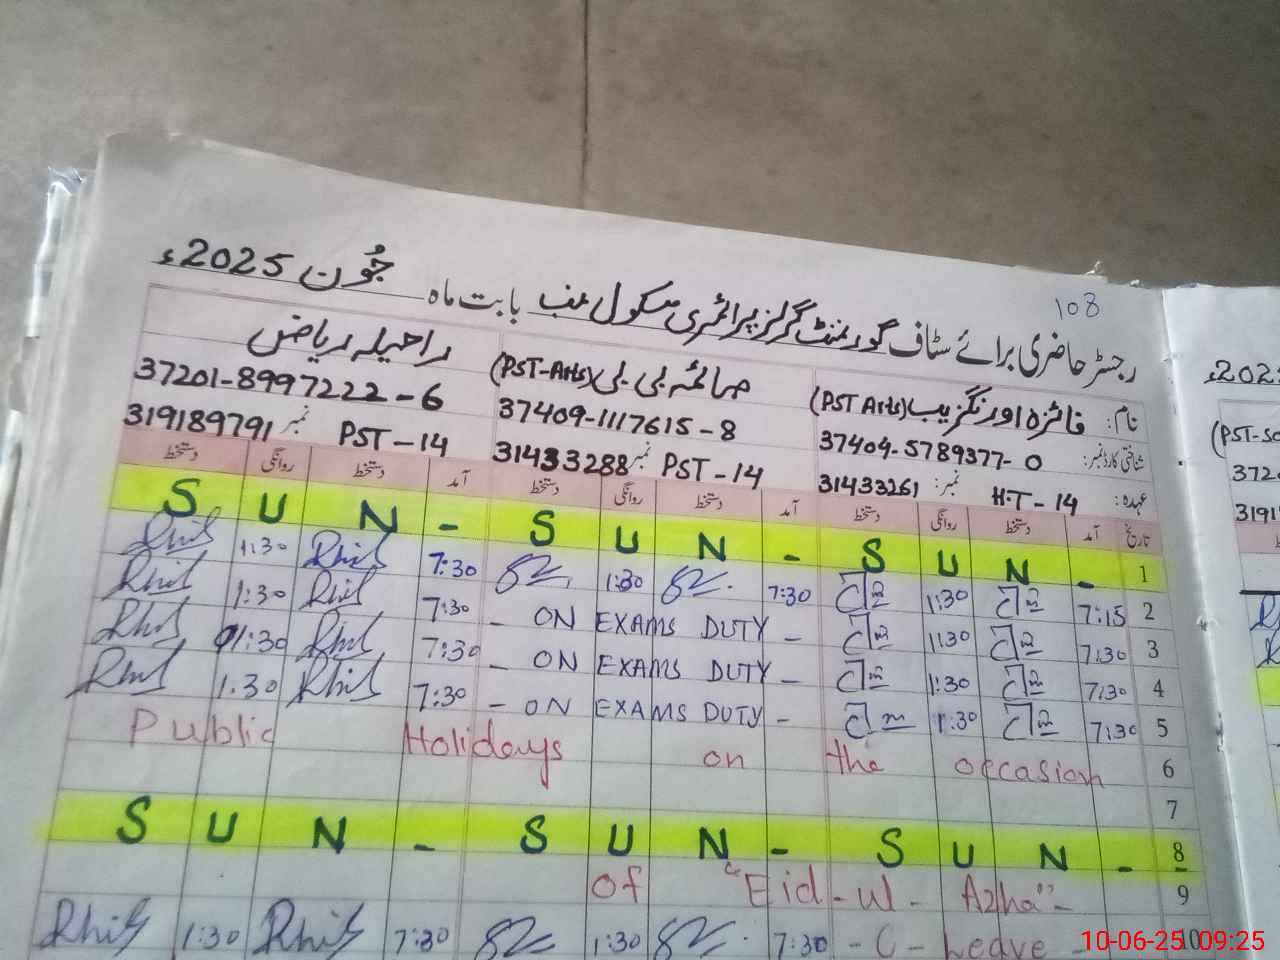 108
رجسٹر حاضری برائے سٹاف گورنمنٹ گرلز پرائمری سکول بابت ماہ جُون 2025ء
نام: فائزہ اورنگزیب (PST Arts) صائمہ بی بی (PST-Arts) راحیلہ ریاض
شناختی کارڈ نمبر: 37404-5789377-0 37409-1117615-8 37201-8997222-6
عہدہ: H.T-14 نمبر: 31433261 PST-14 نمبر 31433288 PST-14 نمبر 319189791
تاریخ آمد دستخط روانگی دستخط آمد دستخط روانگی دستخط آمد دستخط روانگی دستخط
S U N - S U N - S U N - 1
1:30 7:30 1:30 7:30 1:30 7:15 2
1:30 7:30 - ON EXAMS DUTY - 1:30 7:30 3
01:30 7:30 - ON EXAMS DUTY - 1:30 7:30 4
1:30 7:30 - ON EXAMS DUTY - 1:30 7:30 5
Public Holidays on the occasion 6
7
S U N - S U N - S U N - 8
of "Eid-ul-Azha"- 9
1:30 7:30 1:30 7:30 - C - Leave - 10
2025ء
(PST-Sc
372
3191
10-06-25 09:25